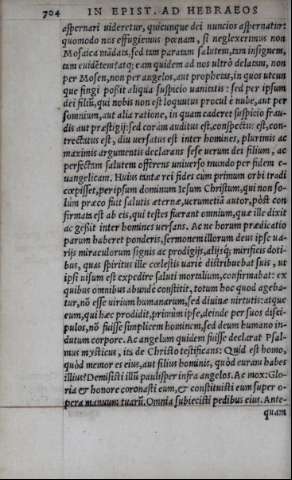 704 IN EPIST. AD HEBRAEOS
aspernari uideretur, quicunque dei nuncios aspernatur:
quomodo nos effugiemus pœnam, si neglexerimus non
Mosaica mādata, sed tam paratam salutem, tam insignem,
tam euidētem? atq; eam quidem ad nos ultrò delatam, non
per Mosen, non per angelos, aut prophetas, in quos utcun
que fingi possit aliqua suspicio uanitatis: sed per ipsum
dei filiū, qui nobis non est loquutus procul è nube, aut per
somnium, aut alia ratione, in quam caderet suspicio frau-
dis aut præstigij: sed coràm auditus est, conspectus est, con-
trectatus est, diu uersatus est inter homines, plurimis ac
maximis argumentis declarans sese uerum dei filium, ac
perfectam salutem offerens uniuerso mundo per fidem e-
uangelicam. Huius tātæ rei fides cum primum orbi tradi
cœpisset, per ipsum dominum Iesum Christum, qui non so-
lum præco fuit salutis æternæ, uerumetiā autor, pōst con
firmata est ab eis, qui testes fuerant omnium, quæ ille dixit
ac gessit inter homines uersans. Ac ne horum prædicatio
parum haberet ponderis, sermonem illorum deus ipse ua-
rijs miraculorum signis ac prodigijs, alijsq; mirificis doti-
bus, quas spiritus ille cœlestis uariè distribuebat suis, ut
ipsi uisum est expedire saluti mortalium, confirmabat: ex
quibus omnibus abunde constitit, totum hoc quod ageba-
tur, nō esse uirium humanarum, sed diuinæ uirtutis: atque
eum, qui hæc prodidit, primùm ipse, deinde per suos disci-
pulos, nō fuisse simplicem hominem, sed deum humano in-
dutum corpore. Ac angelum quidem fuisse declarat Psal-
mus mysticus, ita de Christo testificans: Quid est homo,
quòd memor es eius, aut filius hominis, quòd curam habes
illius? Demisisti illū paulisper infra angelos. Ac mox: Glo-
ria & honore coronasti eum, & constituisti eum super o-
pera manuum tuarū. Omnia subiecisti pedibus eius. Ante-
quam